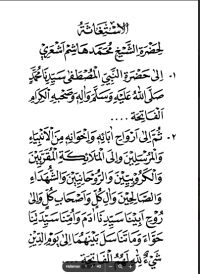 الاستغاثة
لحضرة الشيخ محمد هاشم أشعري
١- إلى حضرة النبي المصطفى سيدنا محمد
صلى الله عليه وسلم وآله وصحبه الكرام
الفاتحة ....
٢- ثم إلى أرواح آبائه وإخوانه من الأنبياء
والمرسلين وإلى الملائكة المقربين
والكروبيين والروحانيين والشهداء
والصالحين وآل كل وأصحاب كل وإلى
روح أبينا سيدنا آدم وأمنا سيدتنا
حواء وما تناسل بينهما إلى يوم الدين
شيء لله لهم الفاتحة